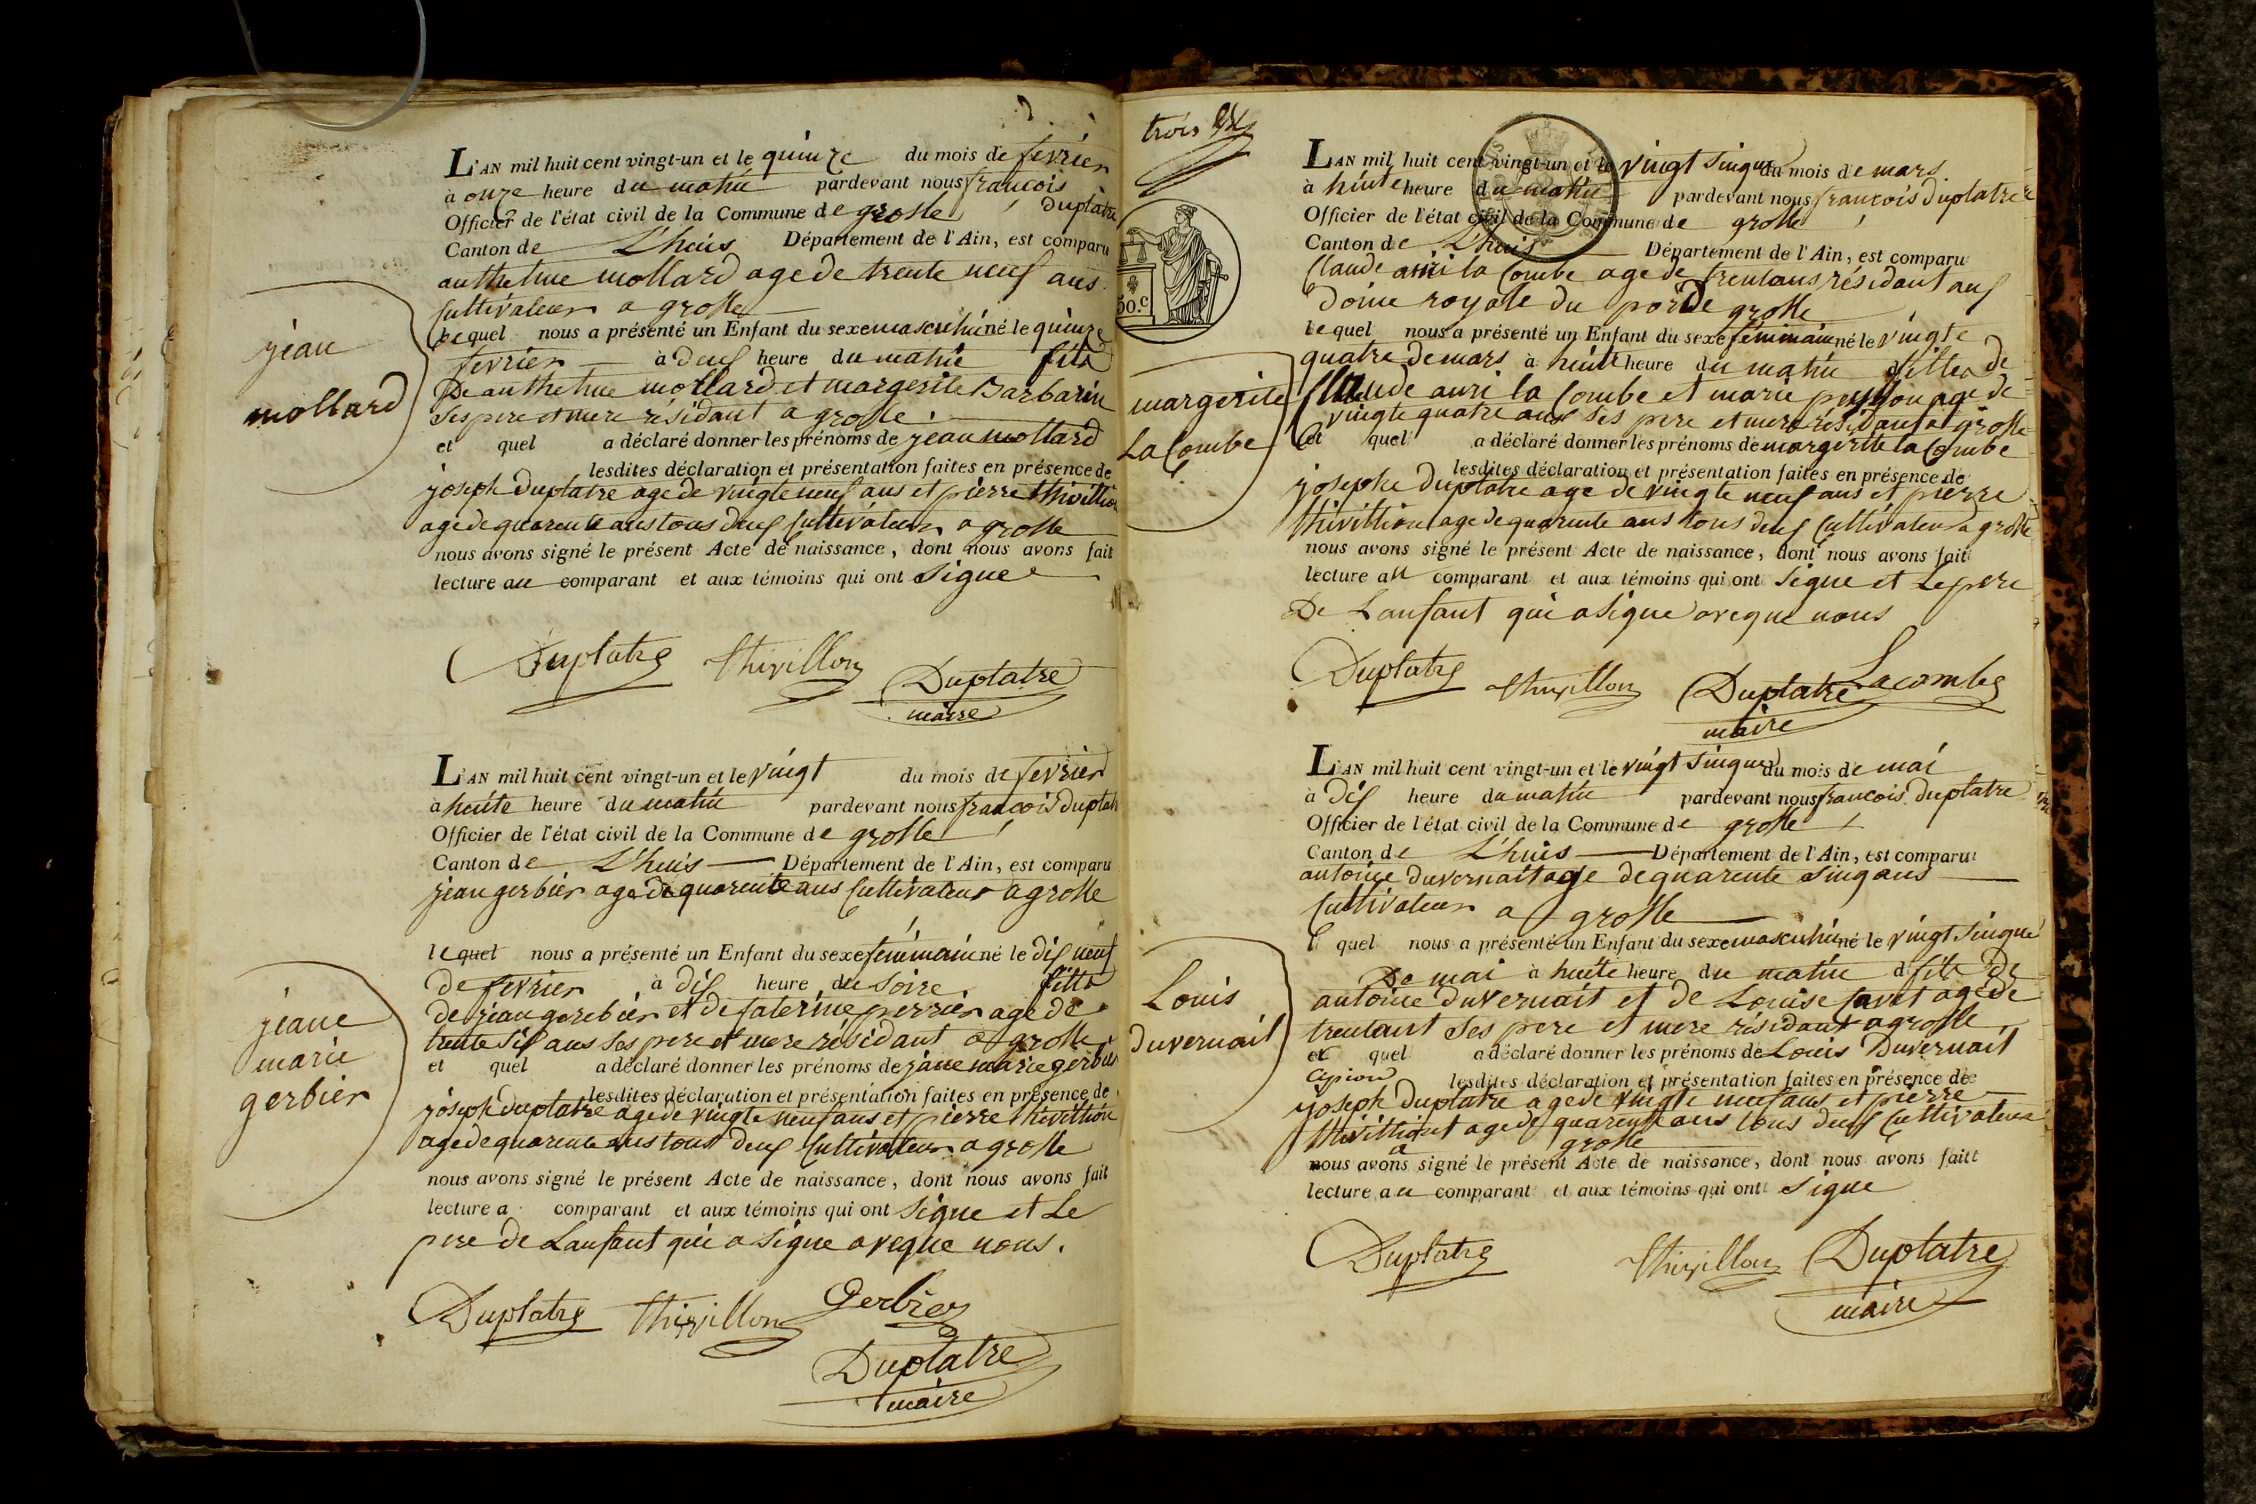 L'AN mil huit cent vingt-un et le quinze du mois de fevrier
à onze heure du matin pardevant nous francois
Officier de l'état civil de la Commune de grosle, duplatre
Canton de L'huis Département de l'Ain, est comparu
anthelme mollard age de trente neuf ans
Cultivateur a grosle
lequel nous a présenté un Enfant du sexe masculin né le quinze
fevrier à deux heure du matin fils
De anthelme mollard et margerite Barbarin
Ses pere et mere résidant a grosle.
et quel a déclaré donner les prénoms de jean mollard
lesdites déclaration et présentation faites en présence de
joseph Duplatre age de vingte neuf ans et pierre thivillion
age de quarente ans tous deux Cultivateur a grosle
nous avons signé le présent Acte de naissance, dont nous avons fait
lecture au comparant et aux témoins qui ont Signe
jean
mollard
Duplatre thivillon Duplatre
maire
L'AN mil huit cent vingt-un et le vingt du mois de fevrier
à heuite heure du matin pardevant nous francois Duplatre
Officier de l'état civil de la Commune de grosle,
Canton de L'huis Département de l'Ain, est comparu
jean gerbier age de quarente ans Cultivateur a grosle
lequel nous a présenté un Enfant du sexe féminain né le dix neuf
De fevrier à dix heure du soire fille
de jean gerebier et de caterine perrier age de
trente six ans Ses pere et mere résidant a grosle
et quel a déclaré donner les prénoms de jane marie gerbier
lesdites déclaration et présentation faites en présence de
joseph Duplatre age de vingte neuf ans et pierre thivillion
age de quarente ans tous deux Cultivateur a grosle
nous avons signé le présent Acte de naissance, dont nous avons fait
lecture a comparant et aux témoins qui ont Signe et Le
pere de Lanfant qui a Signe aveque nous.
jeane
marie
gerbier
Duplatre thivillon Gerbier
Duplatre
maire
trois
50.c
L'AN mil huit cent vingt-un et le vingt Sinque du mois de mars
à heuite heure du matin pardevant nous francois Duplatre
Officier de l'état civil de la Commune de grosle,
Canton de L'huis Département de l'Ain, est comparu
Claude anri la Combe age de trentans résidant auf
Doine royale du por De grosle
lequel nous a présenté un Enfant du sexe féminain né le vingte
quatre de mars à heuite heure du matin d fille de
Claude anri la Combe et marie age de
vingte quatre ans Ses pere et mere résidant a grosle
et quel a déclaré donner les prénoms de margerite la Combe
lesdites déclaration et présentation faites en présence de
josephe Duplatre age de vingte neuf ans et pierre
thivillion age de quarente ans tous deux Cultivateur a grosle
nous avons signé le présent Acte de naissance, dont nous avons fait
lecture au comparant et aux témoins qui ont Signe et Le pere
De Lanfant qui a Signe aveque nous
margerite
La Combe
Duplatre thivillon Duplatre Lacombe
maire
L'AN mil huit cent vingt-un et le vingt Sinque du mois de mai
à Dix heure du matin pardevant nous francois Duplatre
Officier de l'état civil de la Commune de grosle,
Canton de L'huis Département de l'Ain, est comparu
antoine Duvernait age de quarente Sinq ans
Cultivateur a grosle
l quel nous a présenté un Enfant du sexe masculin né le vingt Sinque
De mai à heuite heure du matin d fils De
antoine Duvernait et de Louise age de
trentant Ses pere et mere résidant a grosle
et quel a déclaré donner les prénoms de Louis Duvernait
Cipion lesdites déclaration et présentation faites en présence de
joseph Duplatre age de vingte neuf ans et pierre
thivilliont age de quarente ans tous deux Cultivateur
a grosle
nous avons signé le présent Acte de naissance, dont nous avons fait
lecture au comparant et aux témoins qui ont Signe
Louis
Duvernait
Duplatre thivillon Duplatre
maire